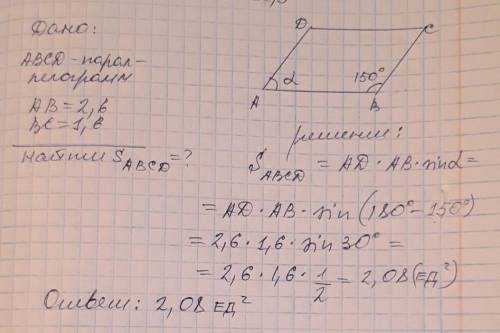 Дано:
ABCD - парал-
лелограмм
AB = 2,6
BC = 1,6
найти S_ABCD = ?
D C
α 150°
A B
решение:
S_ABCD = AD · AB · sin α =
= AD · AB · sin (180° - 150°)
= 2,6 · 1,6 · sin 30° =
= 2,6 · 1,6 · 1/2 = 2,08 (ЕД²)
Ответ: 2,08 ЕД²